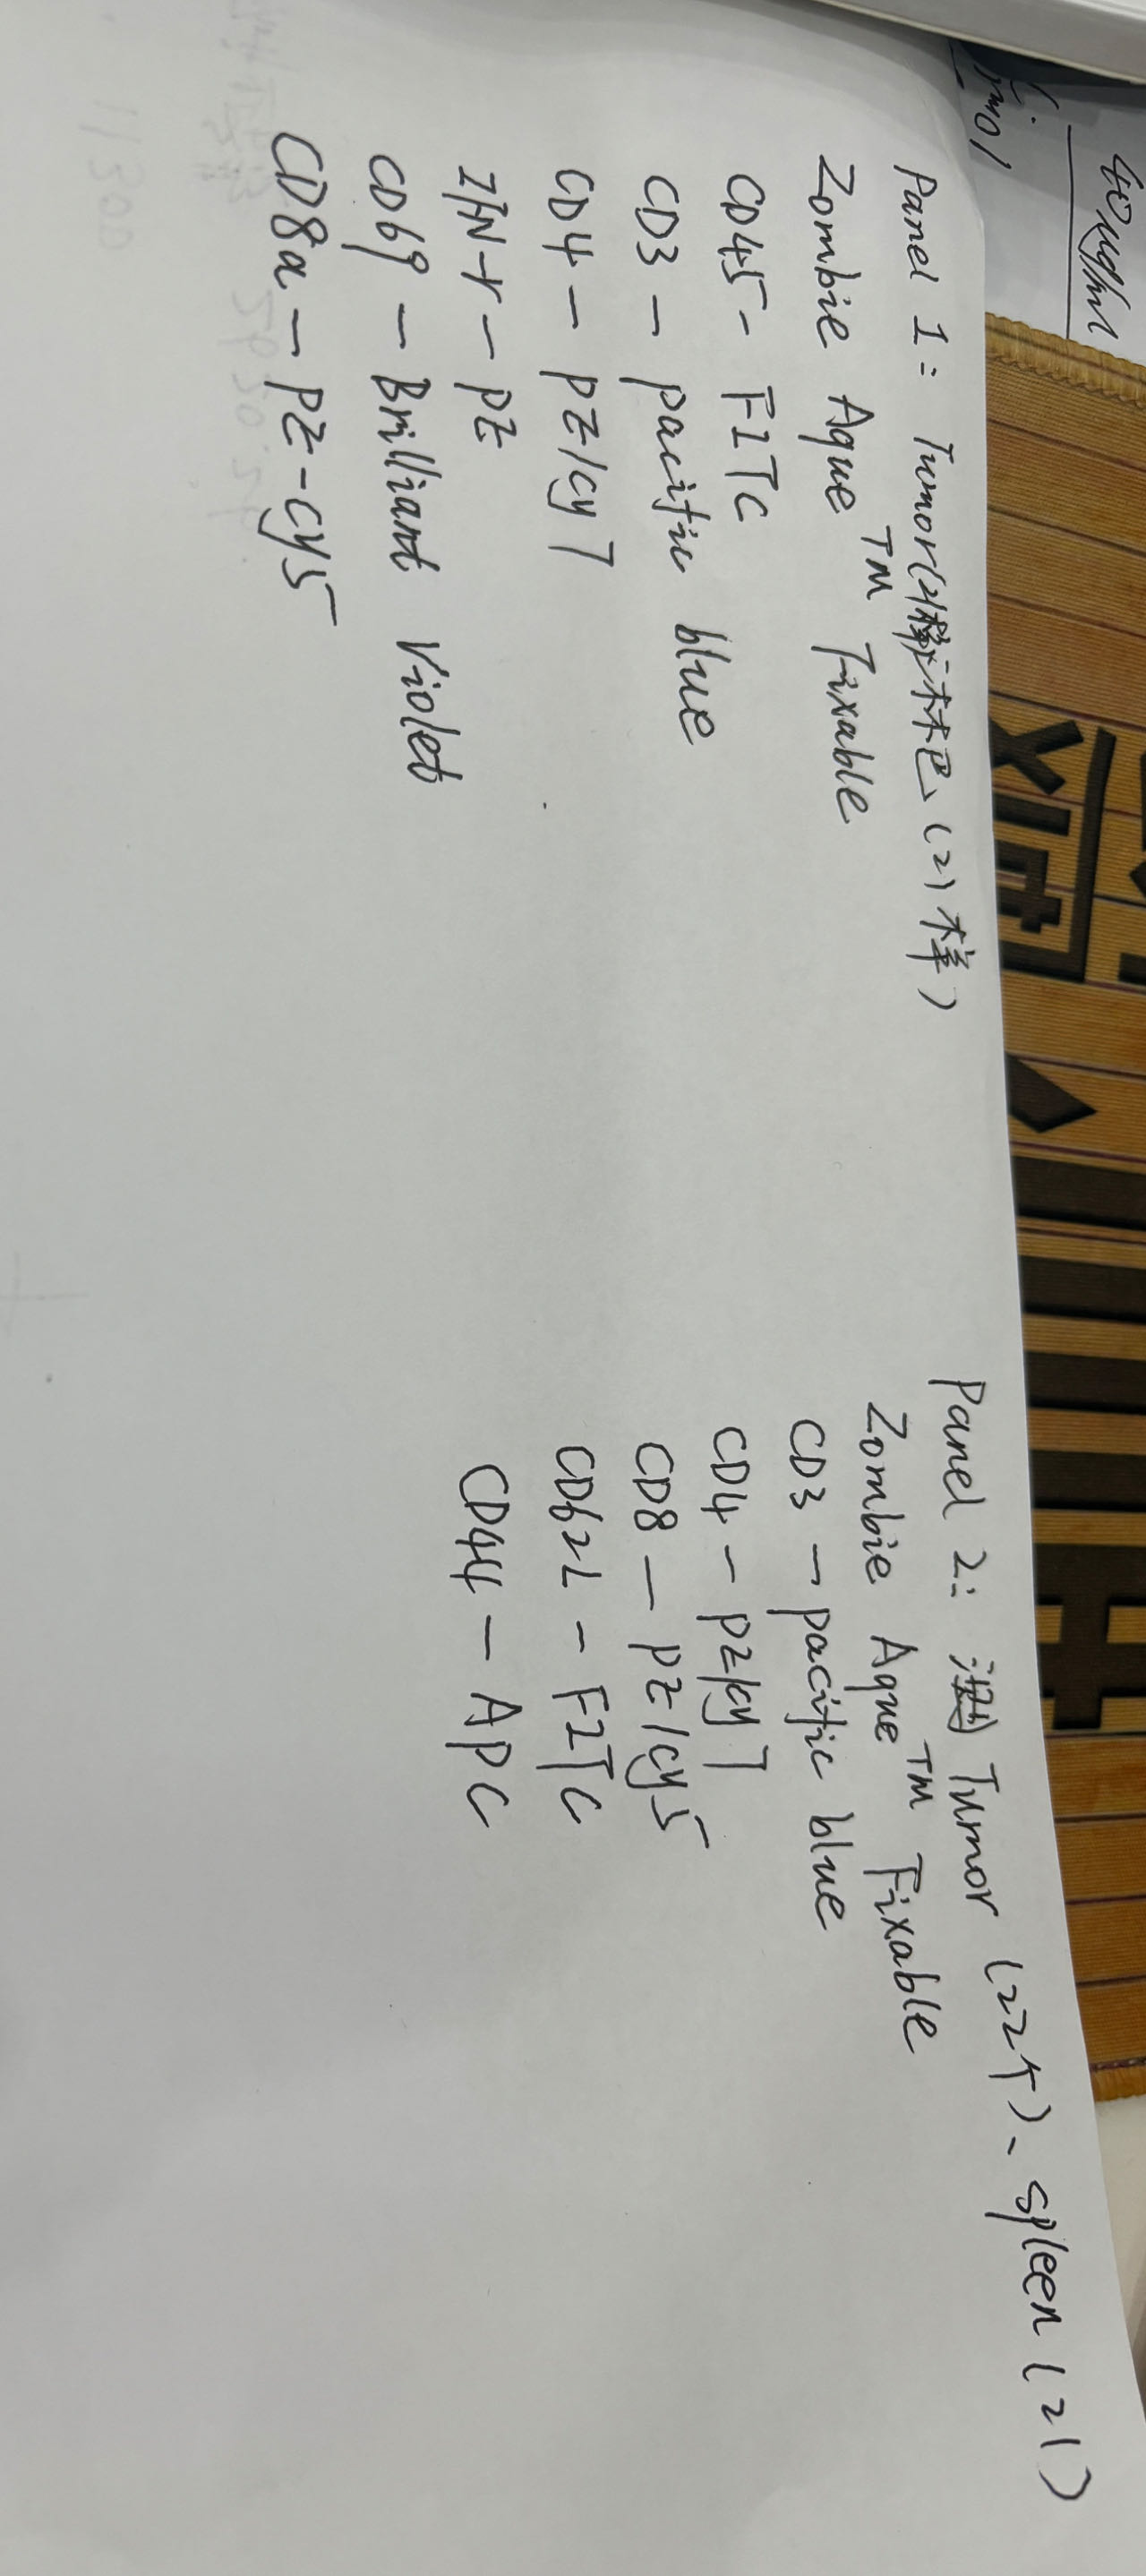 40ug/ml
Panel 1: Tumor(21样)淋巴(21样)
Zombie Aque TM Fixable
CD45 - FITC
CD3 - pacific blue
CD4 - PE/cy7
IFN-r - PE
CD69 - Brilliant Violet
CD8a - PE-cy5
Panel 2: Tumor (22个)、spleen (21)
Zombie Aque TM Fixable
CD3 - pacific blue
CD4 - PE/cy7
CD8 - PE/cy5
CD62L - FITC
CD44 - APC